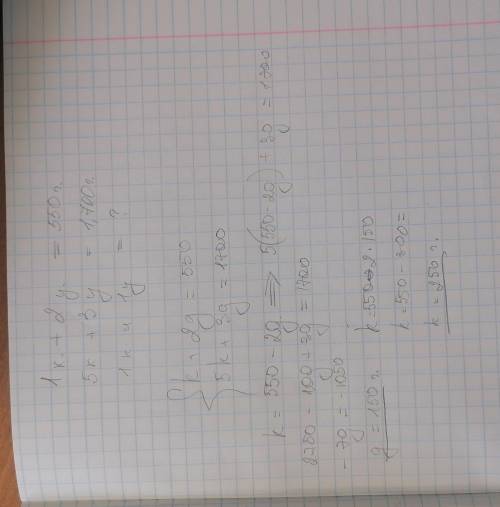 1к. + 2 у. = 550 г.
5к + 3 у = 1700 г.
1к и 1у = ?
{ k + 2g = 550
5k + 3g = 1700
k = 550 - 2g ⟹ 5(550 - 2g) + 3g = 1700
2750 - 10g + 3g = 1700
- 7g = -1050
g = 150 г.
k = 550 - 2·150
k = 550 - 300 =
k = 250 г.